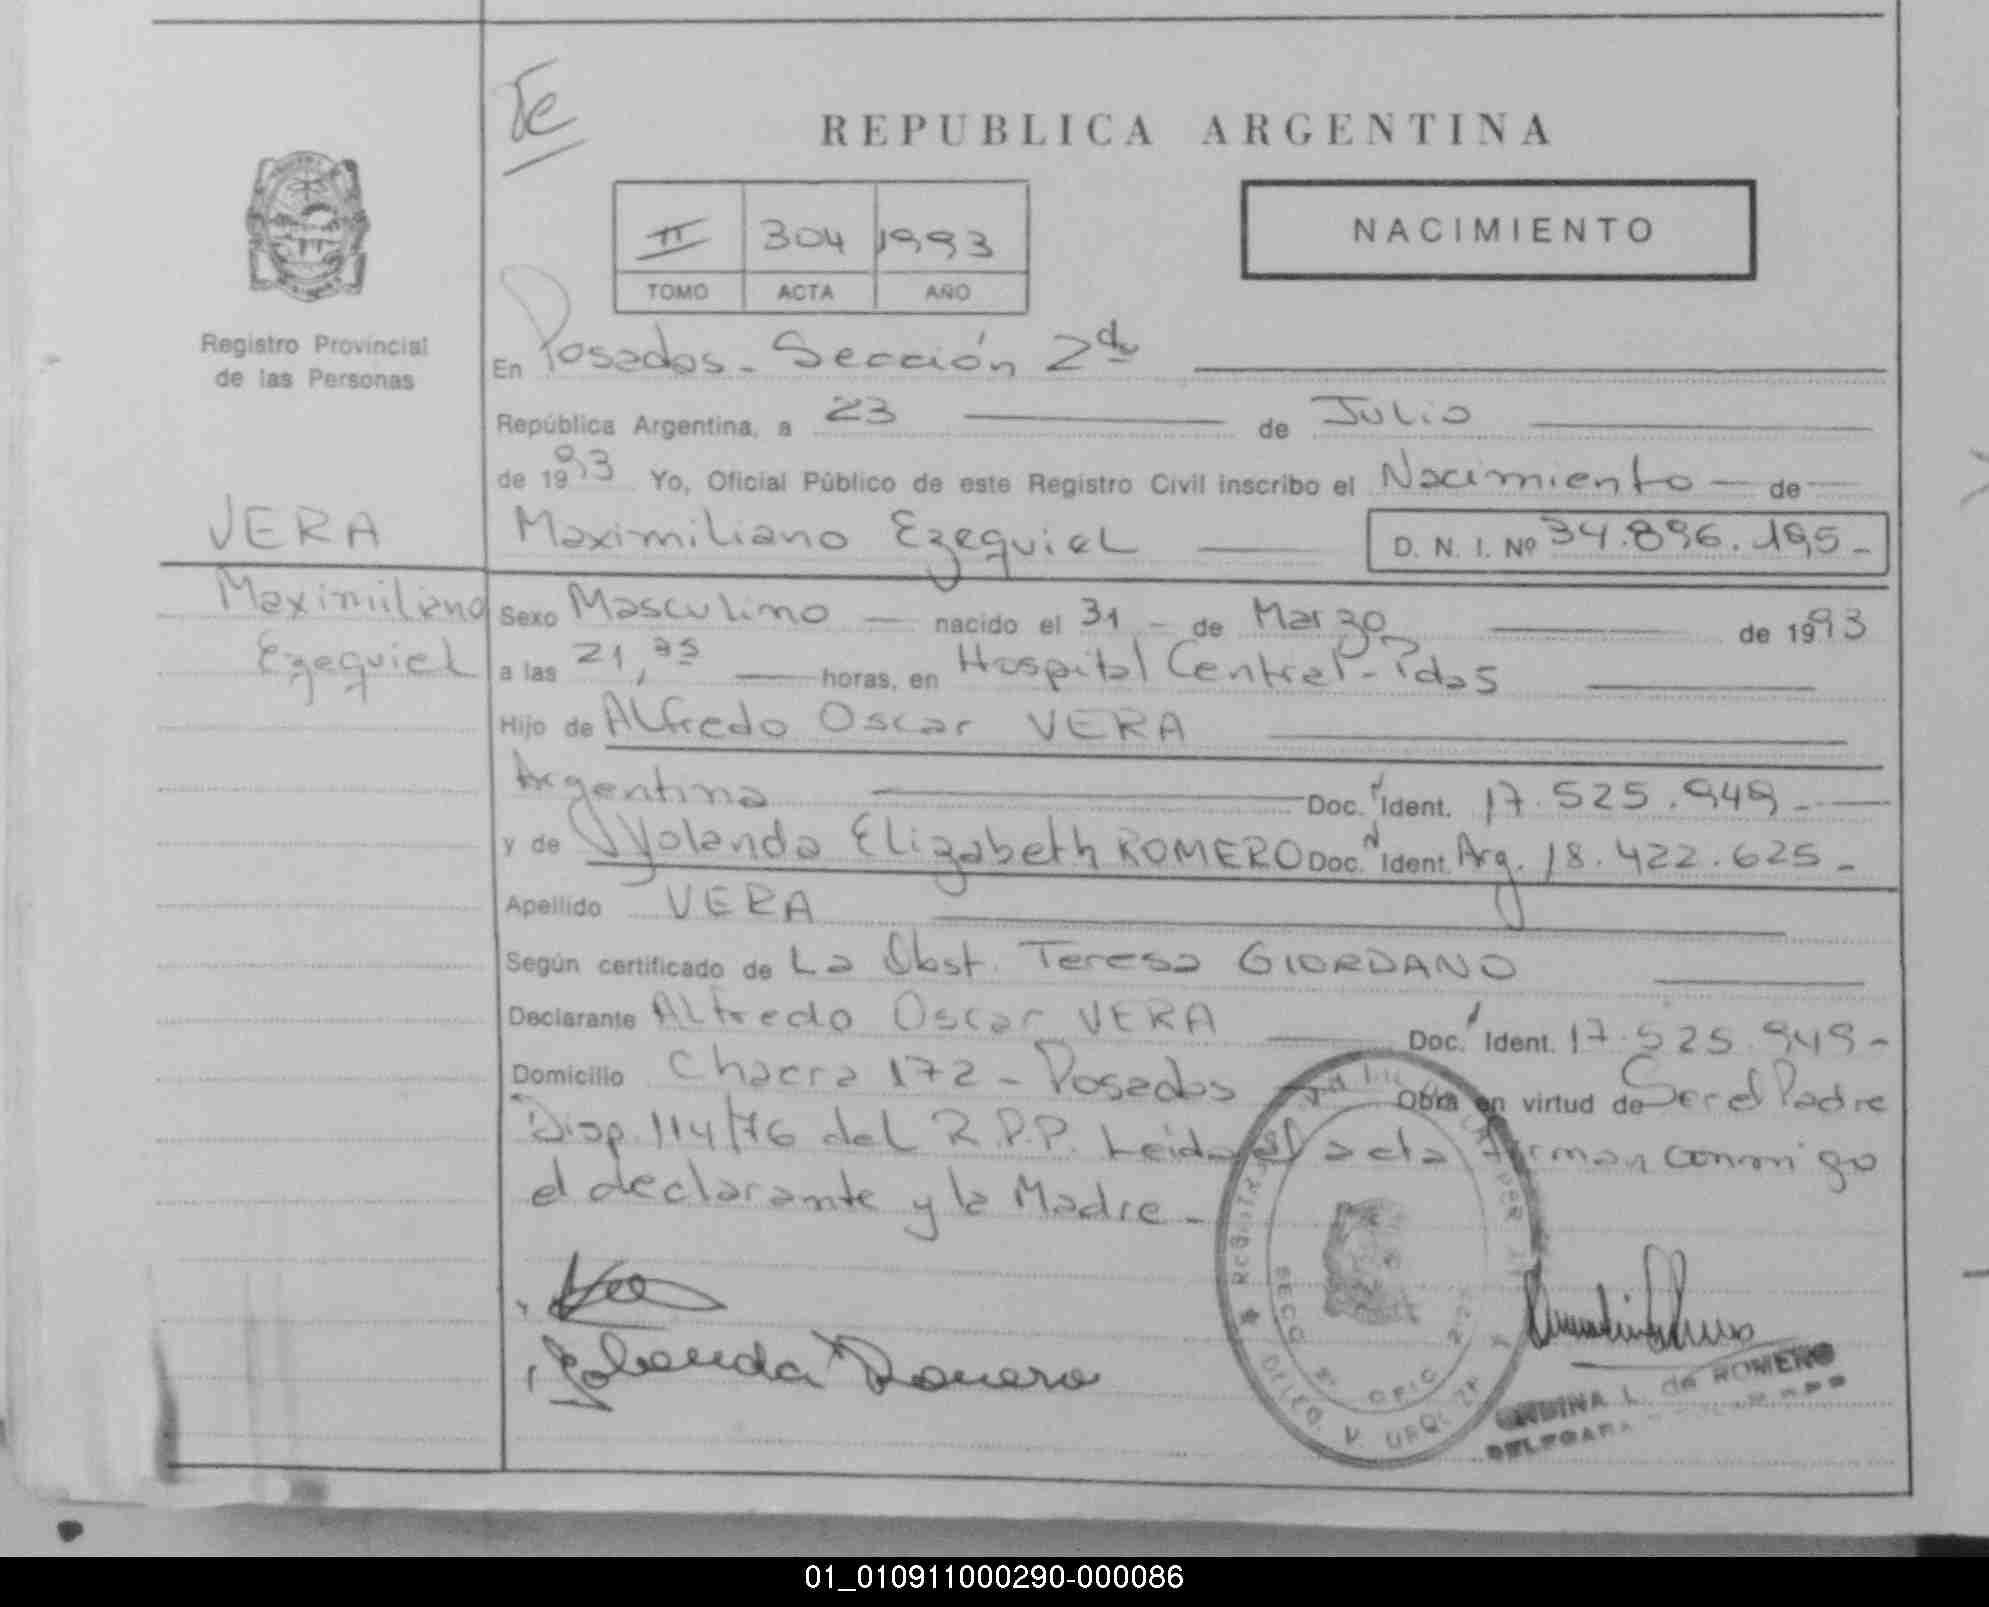 Te
REPUBLICA ARGENTINA
II 304 1993
TOMO ACTA AÑO
NACIMIENTO
Registro Provincial
de las Personas
En Posadas - Sección 2da
República Argentina, a 23 de Julio
de 1993 Yo, Oficial Público de este Registro Civil inscribo el Nacimiento de
VERA
Maximiliano Ezequiel D. N. I. Nº 34.896.195-
Maximiliano
Ezequiel
Sexo Masculino nacido el 31 - de Marzo de 1993
a las 21,35 horas, en Hospital Central - Pdas
Hijo de Alfredo Oscar VERA
Argentina Doc. Ident. 17.525.949-
y de Yolanda Elizabeth ROMERO Doc. Ident. Arg. 18.422.625-
Apellido VERA
Según certificado de La Obst. Teresa GIORDANO
Declarante Alfredo Oscar VERA Doc. Ident. 17.525.949-
Domicilio Chacra 172 - Posadas Obra en virtud de Ser el Padre
Disp. 114/76 del R.P.P. Leida el acta firman conmigo
el declarante y la Madre -
Yolanda Romero
SECC 2ª OFIC
DELEG. V. URQUIZA
L. de ROMERO
01_010911000290-000086